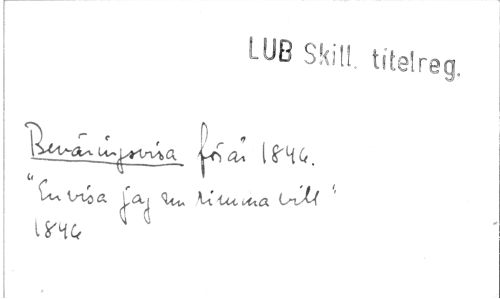 LUB Skill. titelreg.
Beväringsvisa för år 1846.
"En visa jag nu rimma vill"
1846